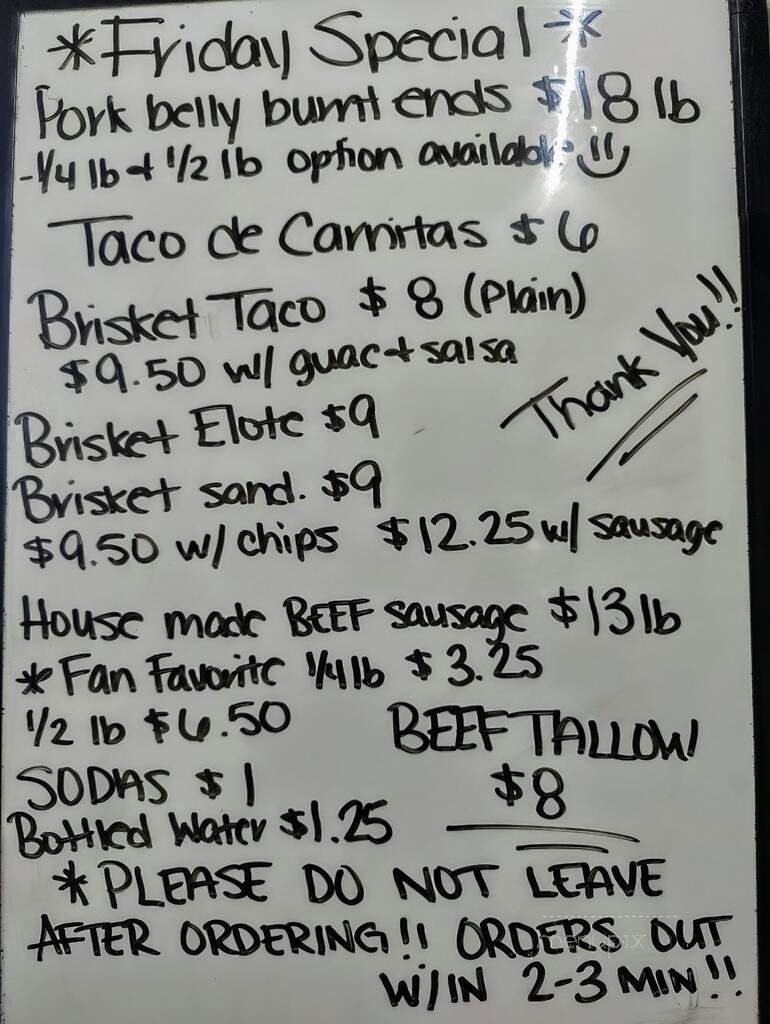 *Friday Special*
Pork belly burnt ends $18 lb
-1/4 lb + 1/2 lb option available
Taco de Carnitas $6
Brisket Taco $8 (Plain)
$9.50 w/ guac + salsa
Thank You!!
Brisket Elote $9
Brisket sand. $9
$9.50 w/ chips $12.25 w/ sausage
House made BEEF sausage $13 lb
*Fan Favorite 1/4 lb $3.25
1/2 lb $6.50
BEEF TALLOW
$8
SODAS $1
Bottled Water $1.25
*PLEASE DO NOT LEAVE
AFTER ORDERING!! ORDERS OUT
W/IN 2-3 MIN!!